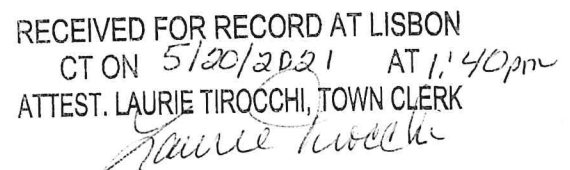 RECEIVED FOR RECORD AT LISBON
CT ON 5/20/2021 AT 1:40pm
ATTEST. LAURIE TIROCCHI, TOWN CLERK
Laurie Tirocchi